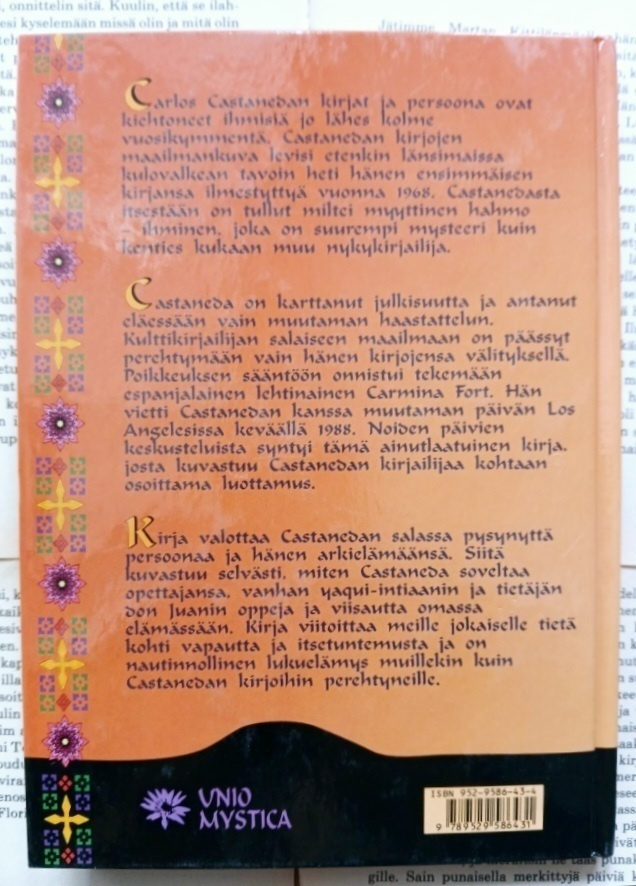 Carlos Castanedan kirjat ja persoona ovat
kiehtoneet ihmisiä jo lähes kolme
vuosikymmentä. Castanedan kirjojen
maailmankuva levisi etenkin länsimaissa
kulovalkean tavoin heti hänen ensimmäisen
kirjansa ilmestyttyä vuonna 1968. Castanedasta
itsestään on tullut miltei myyttinen hahmo
– ihminen, joka on suurempi mysteeri kuin
kenties kukaan muu nykykirjailija.
Castaneda on karttanut julkisuutta ja antanut
eläessään vain muutaman haastattelun.
Kulttikirjailijan salaiseen maailmaan on päässyt
perehtymään vain hänen kirjojensa välityksellä.
Poikkeuksen sääntöön onnistui tekemään
espanjalainen lehtinainen Carmina Fort. Hän
vietti Castanedan kanssa muutaman päivän Los
Angelesissa keväällä 1988. Noiden päivien
keskusteluista syntyi tämä ainutlaatuinen kirja,
josta kuvastuu Castanedan kirjailijaa kohtaan
osoittama luottamus.
Kirja valottaa Castanedan salassa pysynyttä
persoonaa ja hänen arkielämäänsä. Siitä
kuvastuu selvästi, miten Castaneda soveltaa
opettajansa, vanhan yaqui-intiaanin ja tietäjän
don Juanin oppeja ja viisautta omassa
elämässään. Kirja viitoittaa meille jokaiselle tietä
kohti vapautta ja itsetuntemusta ja on
nautinnollinen lukuelämys muillekin kuin
Castanedan kirjoihin perehtyneille.
UNIO
MYSTICA
ISBN 952-9586-43-4
9 789529 586431
onnittelin sitä. Kuulin, että se ilah-
esi kyselemään missä olin ja mitä olin
gille. Sain punaisella merkittyjä päiviä k